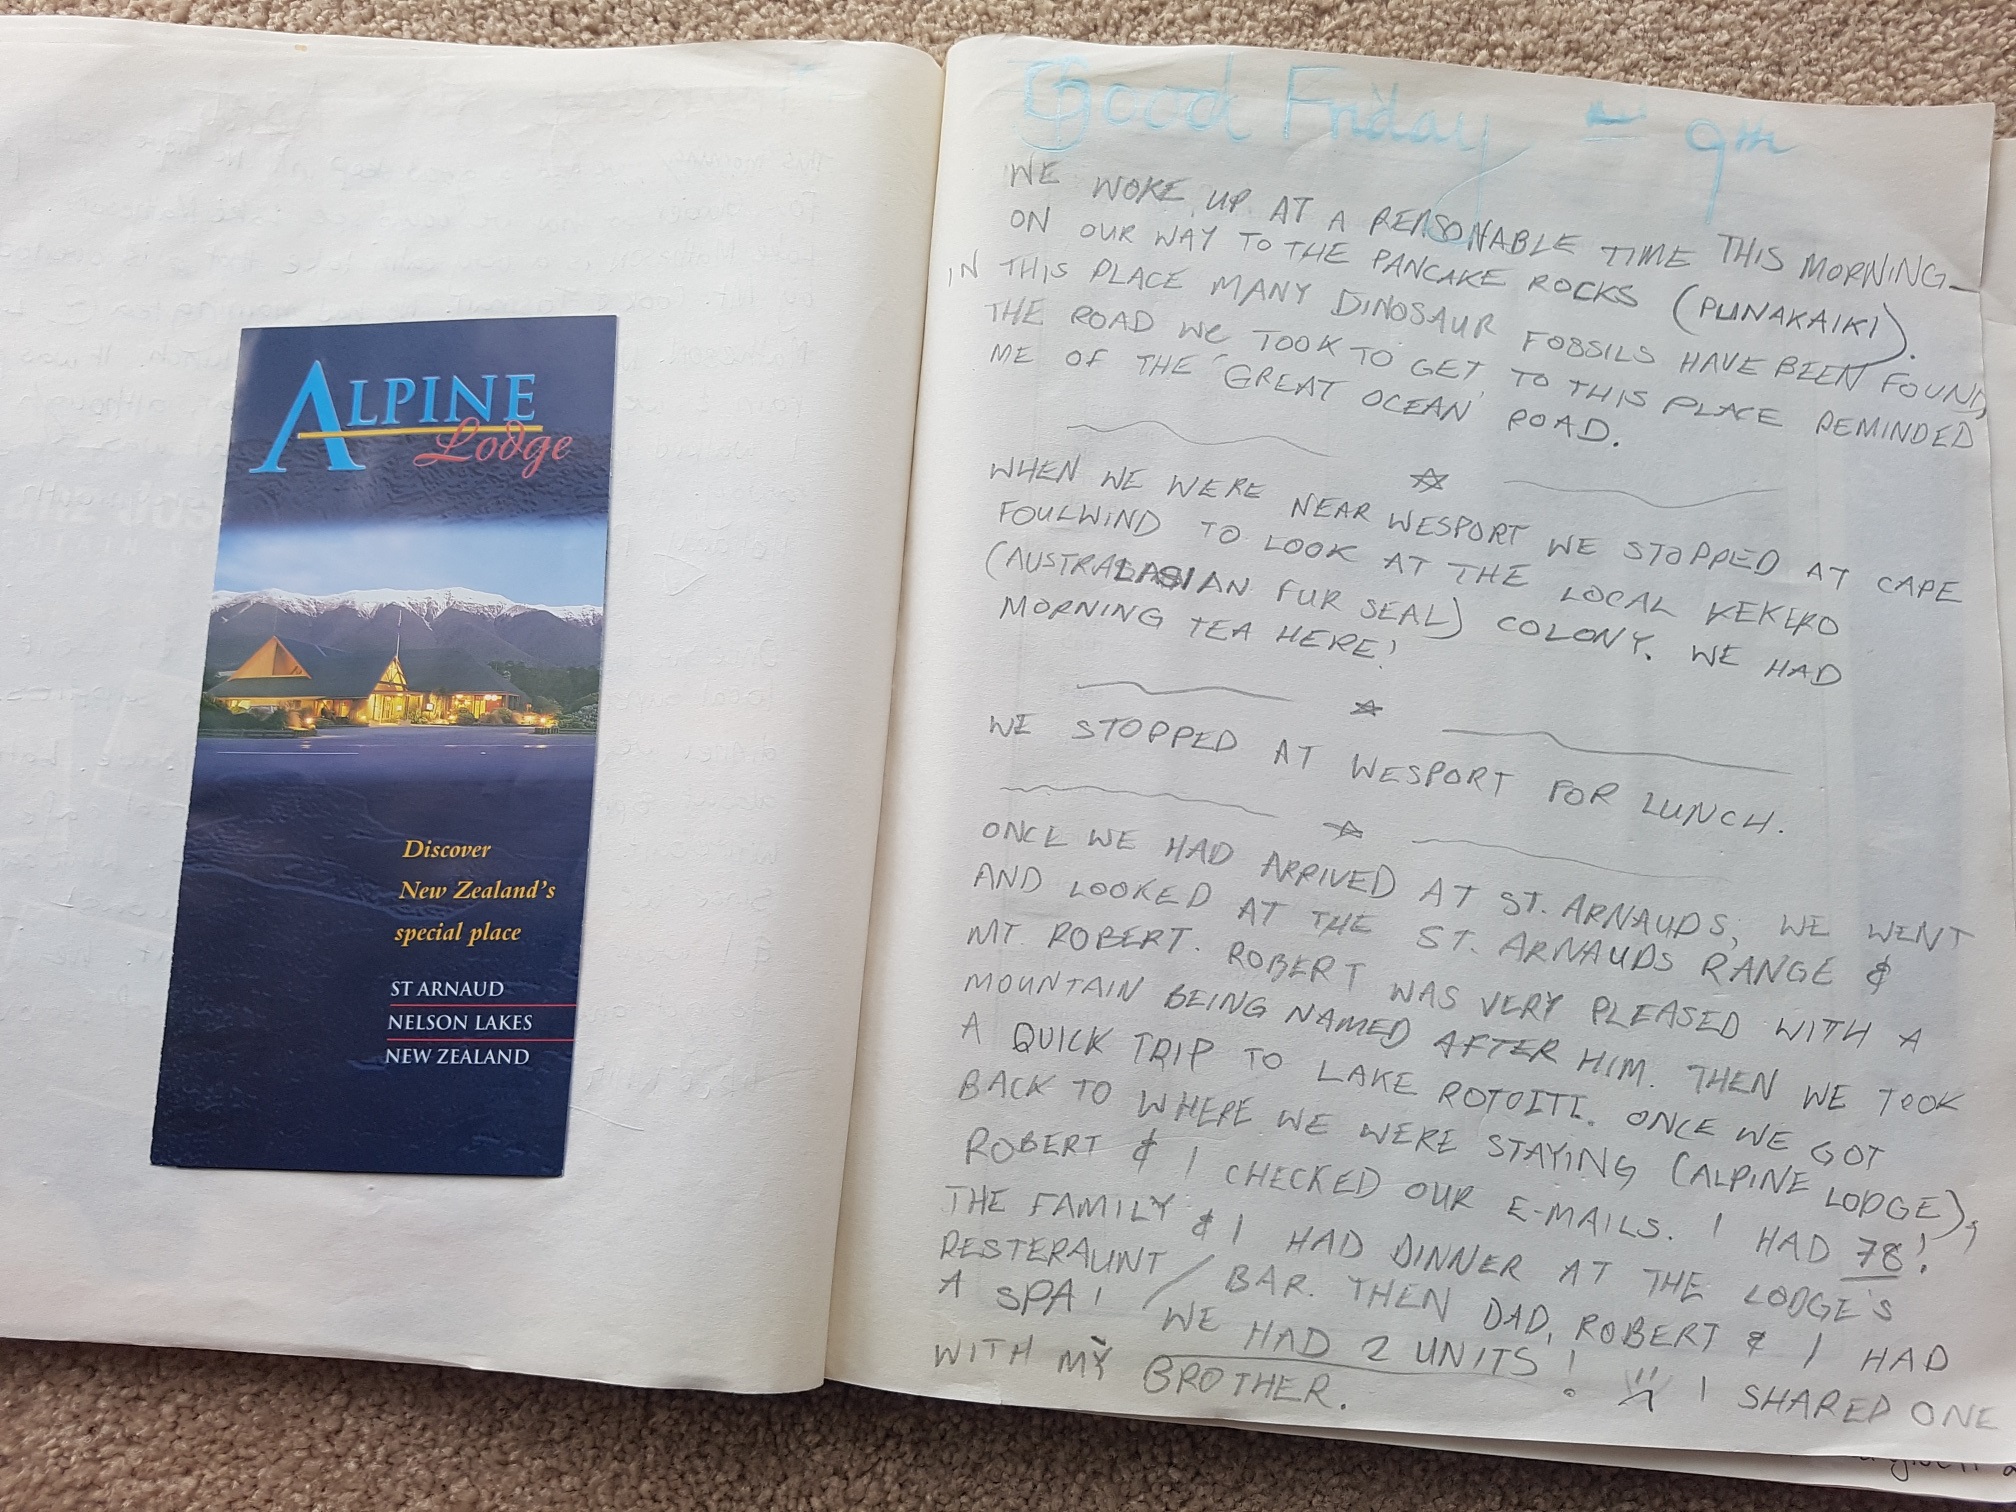 ALPINE
Lodge
Discover
New Zealand's
special place
ST ARNAUD
NELSON LAKES
NEW ZEALAND
Good Friday - 9th
WE WOKE UP AT A REASONABLE TIME THIS MORNING
ON OUR WAY TO THE PANCAKE ROCKS (PUNAKAIKI).
IN THIS PLACE MANY DINOSAUR FOSSILS HAVE BEEN FOUND,
THE ROAD WE TOOK TO GET TO THIS PLACE REMINDED
ME OF THE 'GREAT OCEAN' ROAD.
WHEN WE WERE NEAR WESPORT WE STOPPED AT CAPE
FOULWIND TO LOOK AT THE LOCAL KEKERO
(AUSTRALASIAN FUR SEAL) COLONY. WE HAD
MORNING TEA HERE!
WE STOPPED AT WESPORT FOR LUNCH.
ONCE WE HAD ARRIVED AT ST. ARNAUDS, WE WENT
AND LOOKED AT THE ST. ARNAUDS RANGE &
MT. ROBERT. ROBERT WAS VERY PLEASED WITH A
MOUNTAIN BEING NAMED AFTER HIM. THEN WE TOOK
A QUICK TRIP TO LAKE ROTOITI. ONCE WE GOT
BACK TO WHERE WE WERE STAYING (ALPINE LODGE),
ROBERT & I CHECKED OUR E-MAILS. I HAD 78!
THE FAMILY & I HAD DINNER AT THE LODGE'S
RESTERAUNT / BAR. THEN DAD, ROBERT & I HAD
A SPA! WE HAD 2 UNITS! I SHARED ONE
WITH MY BROTHER.